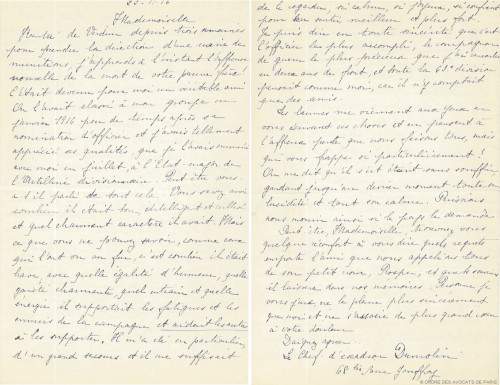 23-11-16
Mademoiselle
Rentré de Verdun depuis trois semaines
pour prendre la direction d'une usine de
munitions, j'apprends à l'instant l'affreuse
nouvelle de la mort de votre jeune frère!
Il était devenu pour moi un véritable ami
On l'avait classé à mon groupe en
janvier 1916 peu de temps après sa
nomination d'officier et j'avais tellement
apprécié ses qualités que je l'avais emmené
avec moi en juillet, à l'Etat-major de
l'Artillerie divisionnaire. Peut-être vous
a t'il parlé de tout cela. Vous savez aussi
combien il était bon, intelligent et cultivé
et quel charmant caractère il avait. Mais
ce que vous ne pouvez savoir, comme ceux
qui l'ont vu au feu, c'est combien il était
brave, avec quelle égalité d'humeur, quelle
gaieté charmante, quel entrain et quelle
énergie il supportait les fatigues et les
ennuis de la campagne et aidait les autres
à les supporter. Il m'a été en particulier
d'un grand secours et il me suffisait
de le regarder, si calme, si joyeux, si confiant
pour me sentir meilleur et plus fort.
Je puis dire en toute sincérité que c'est
l'officier le plus accompli, le compagnon
de guerre le plus précieux que j'ai rencontré
en deux ans de front, et toute la 63e division
pensait comme moi, car il n'y comptait
que des amis.
Les larmes me viennent aux yeux en
vous écrivant ces choses et en pensant à
l'affreuse perte que nous faisons tous mais
qui vous frappe si particulièrement!
On me dit qu'il s'est éteint sans souffrir,
gardant jusqu'au dernier moment toute sa
lucidité et tout son calme. Puissions
nous mourir ainsi si le pays le demande
Peut-être, Mademoiselle, trouverez vous
quelque réconfort à vous dire quels regrets
emporte l'ami que nous appelions tous
de son petit nom, Prosper, et quels souvenirs
il laissera dans nos mémoires. Personne je
vous jure, ne le pleure plus sincèrement
que moi et ne s'associe de plus grand cœur
à votre douleur
Daignez agréer
Le Chef d'escadron Dumolin
68 bis Rue Jouffroy
© ORDRE DES AVOCATS DE PARIS